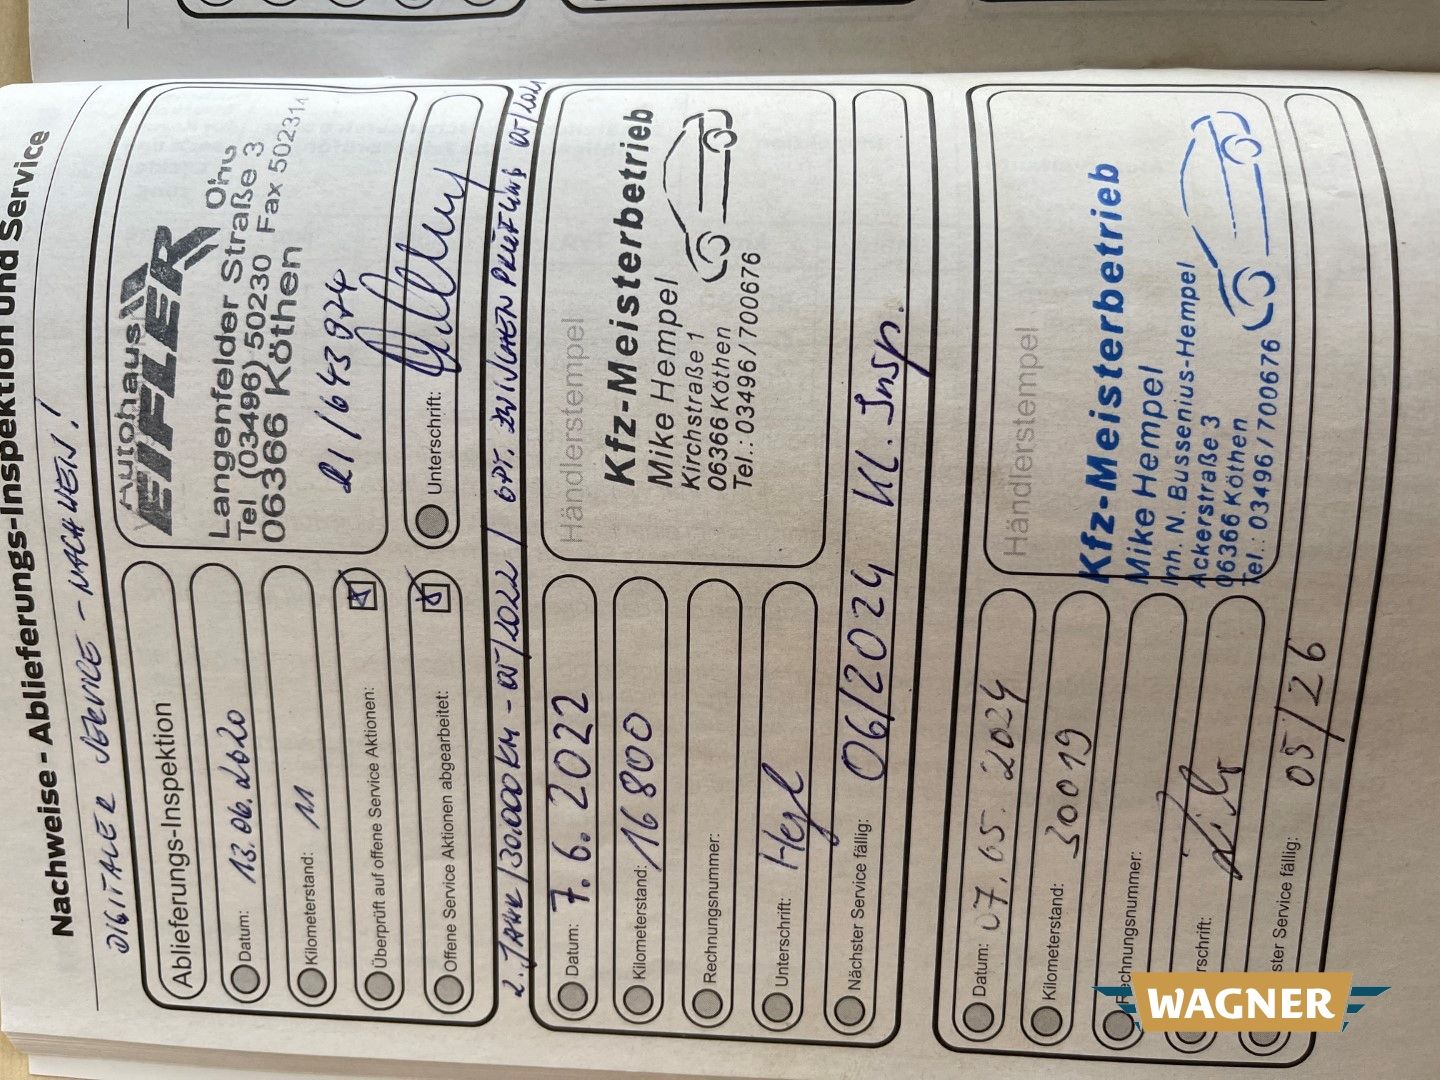 Nachweise - Ablieferungs-Inspektion und Service
DIGITALER SERVICE - NACHWEIS!
Ablieferungs-Inspektion
Datum: 13.06.2020
Kilometerstand: 11
Überprüft auf offene Service Aktionen:
Offene Service Aktionen abgearbeitet:
Autohaus
EIFLER
Langenfelder Straße 3
Tel (03496) 50230 Fax 502314
06366 Köthen
21/643974
Unterschrift:
2. JAHR/30.000 KM - 05/2022 / OPT. ZWISCHENPRÜFUNG 05/2021
Datum: 7.6.2022
Kilometerstand: 16800
Rechnungsnummer:
Unterschrift:
Nächster Service fällig: 06/2024 Kl. Insp.
Händlerstempel
Kfz-Meisterbetrieb
Mike Hempel
Kirchstraße 1
06366 Köthen
Tel.: 03496/700676
Datum: 07.05.2024
Kilometerstand: 30019
Rechnungsnummer:
rschrift:
ster Service fällig: 05/26
Händlerstempel
Kfz-Meisterbetrieb
Mike Hempel
Inh. N. Bussenius-Hempel
Ackerstraße 3
06366 Köthen
Tel.: 03496/700676
WAGNER